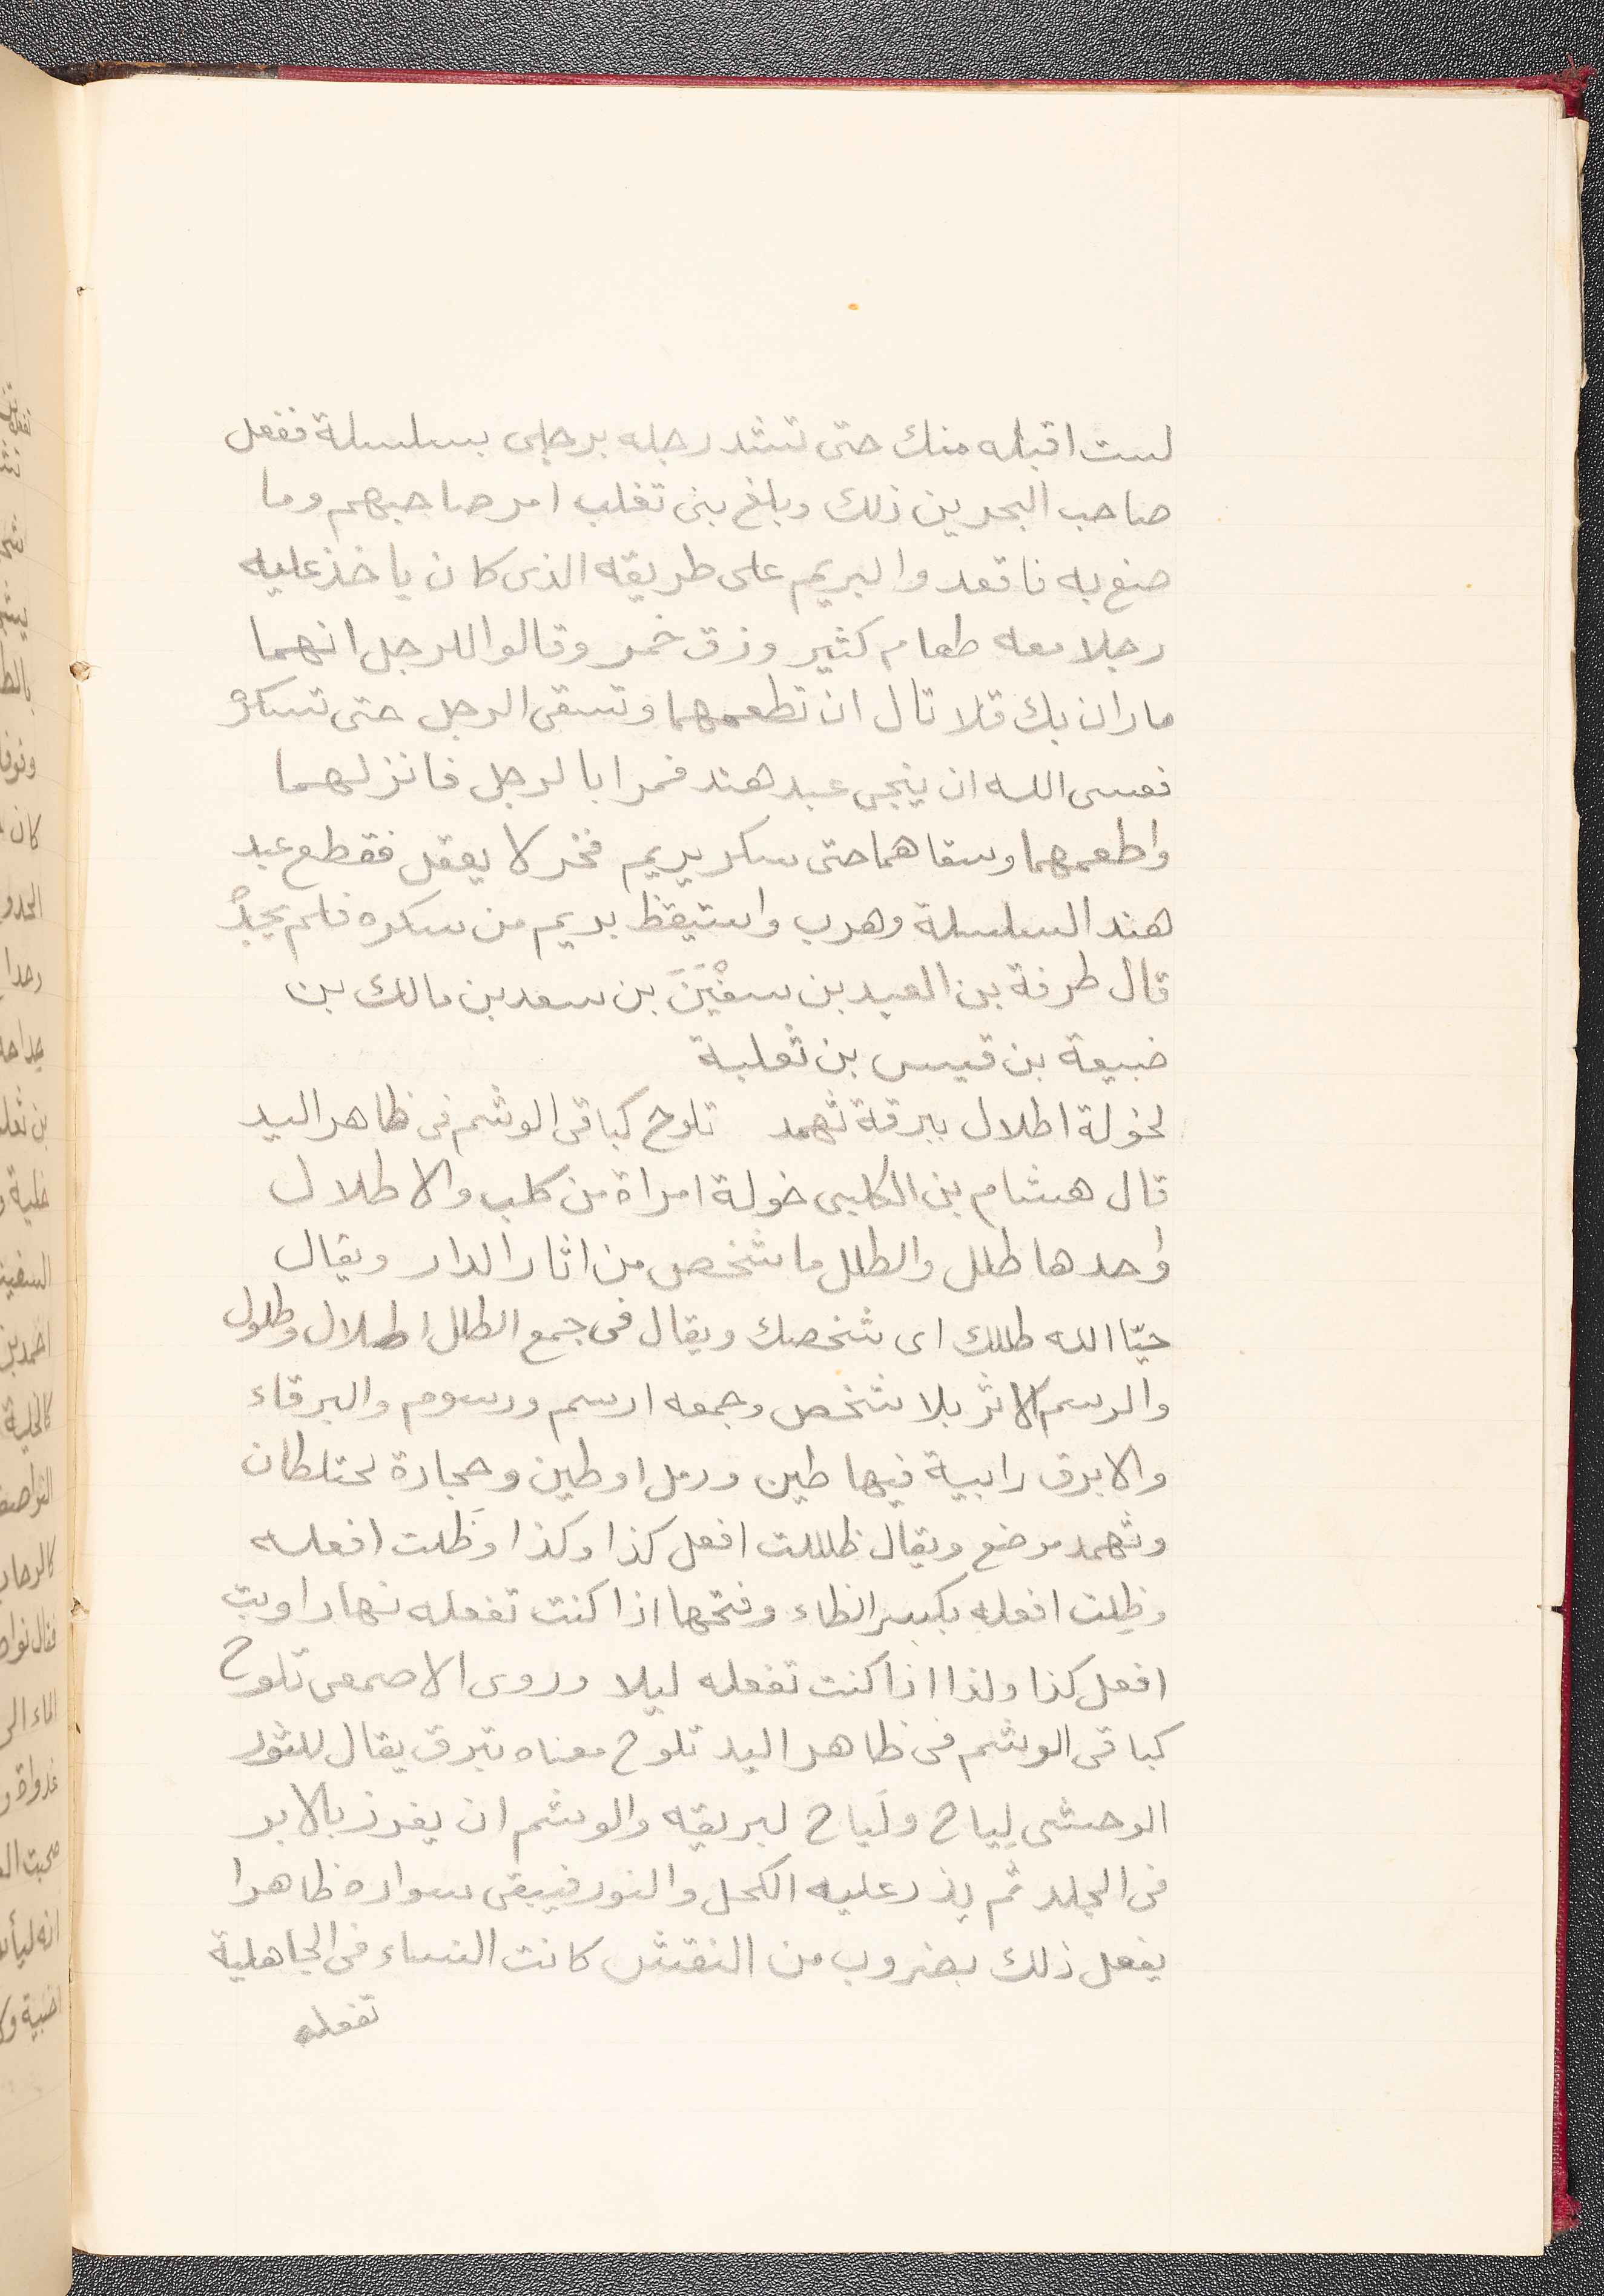 لست اقبله منك حتى تشد رجله برجلى بسلسلة ففعل
صاحب البحرين ذلك وبلغ بنى تغلب امر صاحبهم وما
صنع به فاقعدوا لبريم على طريقه الذى كان ياخذ عليه
رجلا معه طعام كثير وزق خمر وقالوا للرجل انهما
ماران بك فلا تال ان تطعمهما وتسقى الرجل حتى تسكره
فعسى الله ان ينجى عبد هند فمرا بالرجل فانزلهما
واطعمهما وسقاهما حتى سكر بريم فخر لا يعقل فقطع عبد
هند السلسلة وهرب واستيقظ بريم من سكره فلم يجده
قال طرفة بن العبد بن سفْيَنَ بن سعد بن مالك بن
ضبيعة بن قيس بن ثعلبة
لخولة اطلال ببرقة ثهمد تلوح كباقى الوشم فى ظاهر اليد
قال هشام بن الكلبى خولة امراة من كلب والاطلال
واحدها طلل والطلل ما شخص من اثار الدار ويقال
حيّا الله طللك اى شخصك ويقال فى جمع الطلل اطلال وطلول
والرسم الاثر بلا شخص وجمعه ارسم ورسوم والبرقاء
والابرق رابية فيها طين ورمل او طين وحجارة يختلطان
وثهمد موضع ويقال ظللت افعل كذا وكذا وظَلت افعله
وظِلت افعله بكسر الظاء وفتحها اذا كنت تفعله نهارا وبت
افعل كذا ولذا اذا كنت تفعله ليلا وروى الاصمعى تلوح
كباقى الوشم فى ظاهر اليد تلوح معناه تبرق يقال للثور
الوحشى لِياح ولَياح لبريقه والوشم ان يغرز بالابر
فى الجلد ثم يذر عليه الكحل والنور فيبقى سواده ظاهرا
يفعل ذلك بضروب من النقش كانت النساء فى الجاهلية
تفعله